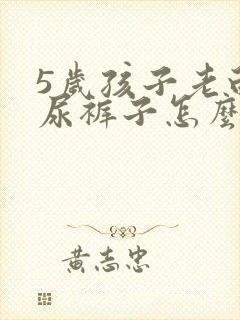 5歲孩子老
尿褲子怎麼
黃志忠